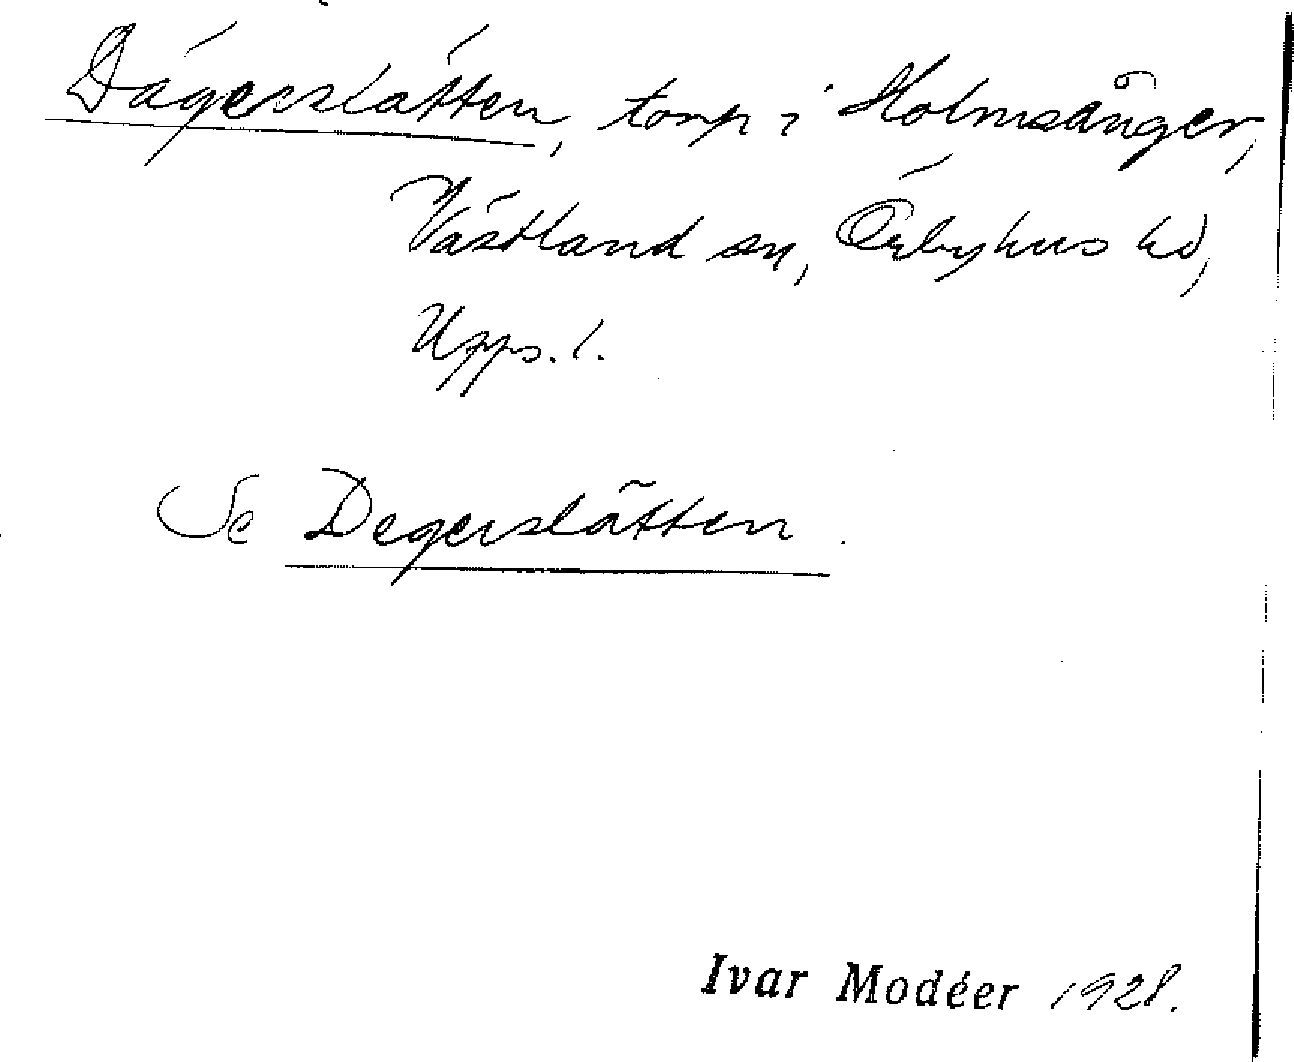 Dägerslätten, torp i Holmsånger,
Västland sn, Örbyhus hd,
Upps. l.
Se Degerslätten.
Ivar Modéer 1928.